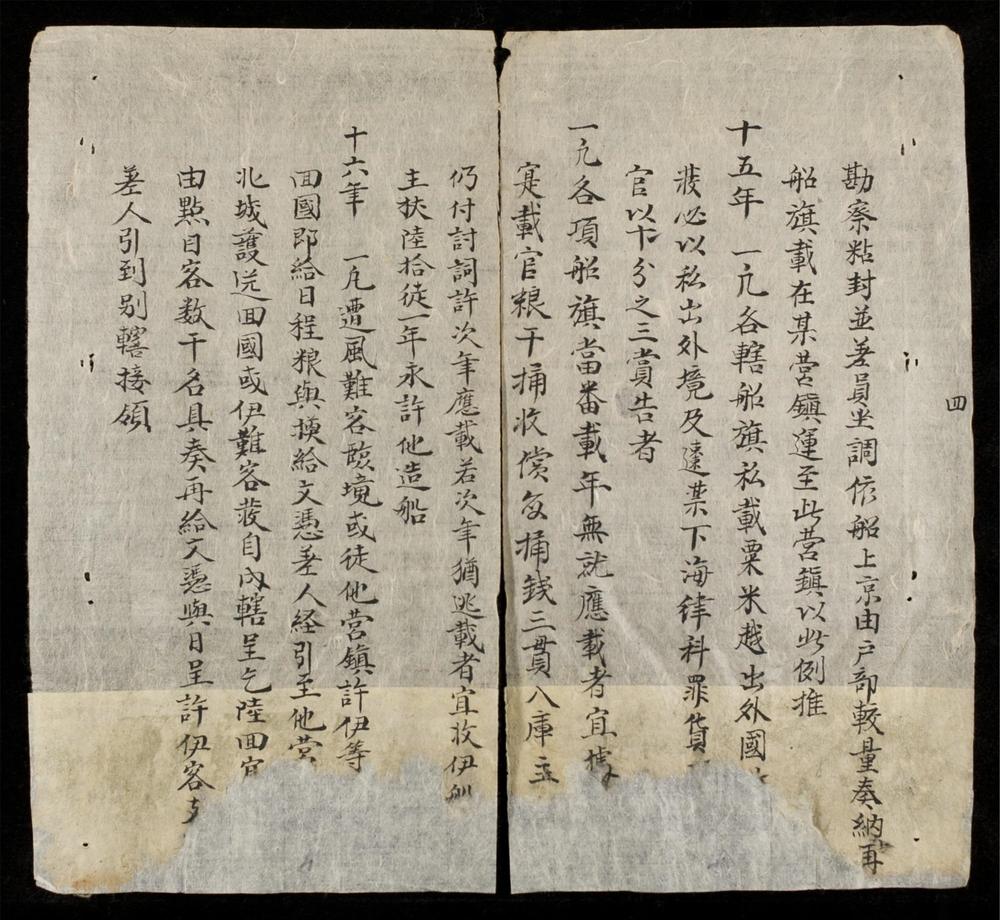 四
勘察粘封並差員坐調依船上京由户部較量奏納再
船旗載在某营鎮運至此营鎮以此例推
十五年 一凢各轄船旗私載粟米越出外國
裝必以私出外境及違某下海律科罪貨
官以十分之三賞告者
一凢各項船旗當番載年無就應載者宜據
寔載官粮干捅收償每捅銭三貫入庫
仍付討詞許次年應載若次年猶逃載者宜收伊
主扙陸拾徒一年永許他造船
十六年 一凢遭風難客臨境或徒他营鎮許伊等
囬國即給日程粮與換給文憑差人経引至他营
北城護送囬國或伊難客發自内轄呈乞陸囬宜
由點目客数干名具奏再給文憑與日呈許伊客
差人引到别轄接領